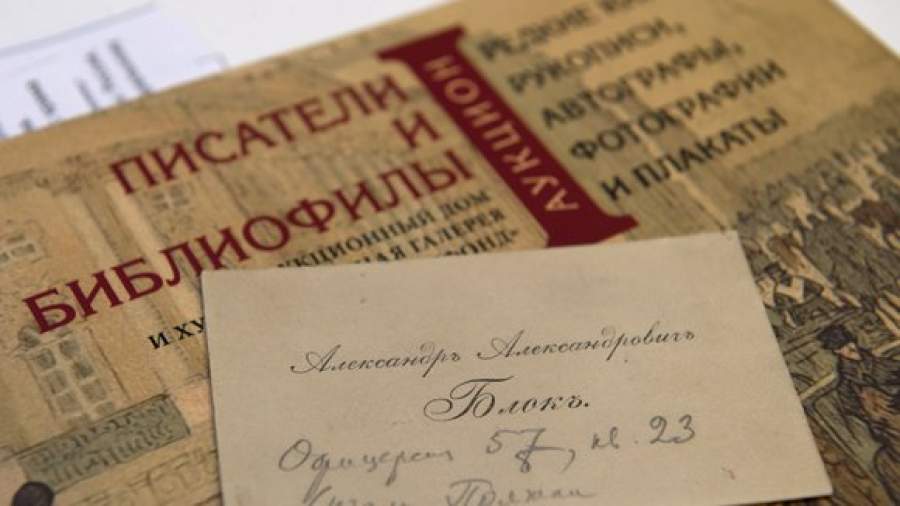 ПИСАТЕЛИ
И
БИБЛИОФИЛЫ
I
АУКЦИОН
РЕДКИЕ
РУКОПИСИ,
АВТОГРАФЫ,
ФОТОГРАФИИ
И ПЛАКАТЫ
ДОМ
ГАЛЕРЕЯ
ФОНД»
И
Александръ Александровичъ
Блокъ.
Офицерская 57, кв. 23